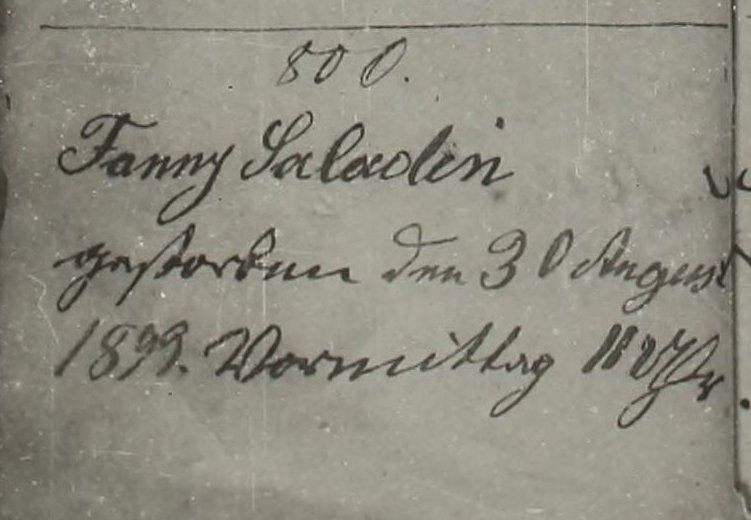 800.
Fanny Saladin
gestorben den 30 August
1899. Vormittag 11 Uhr